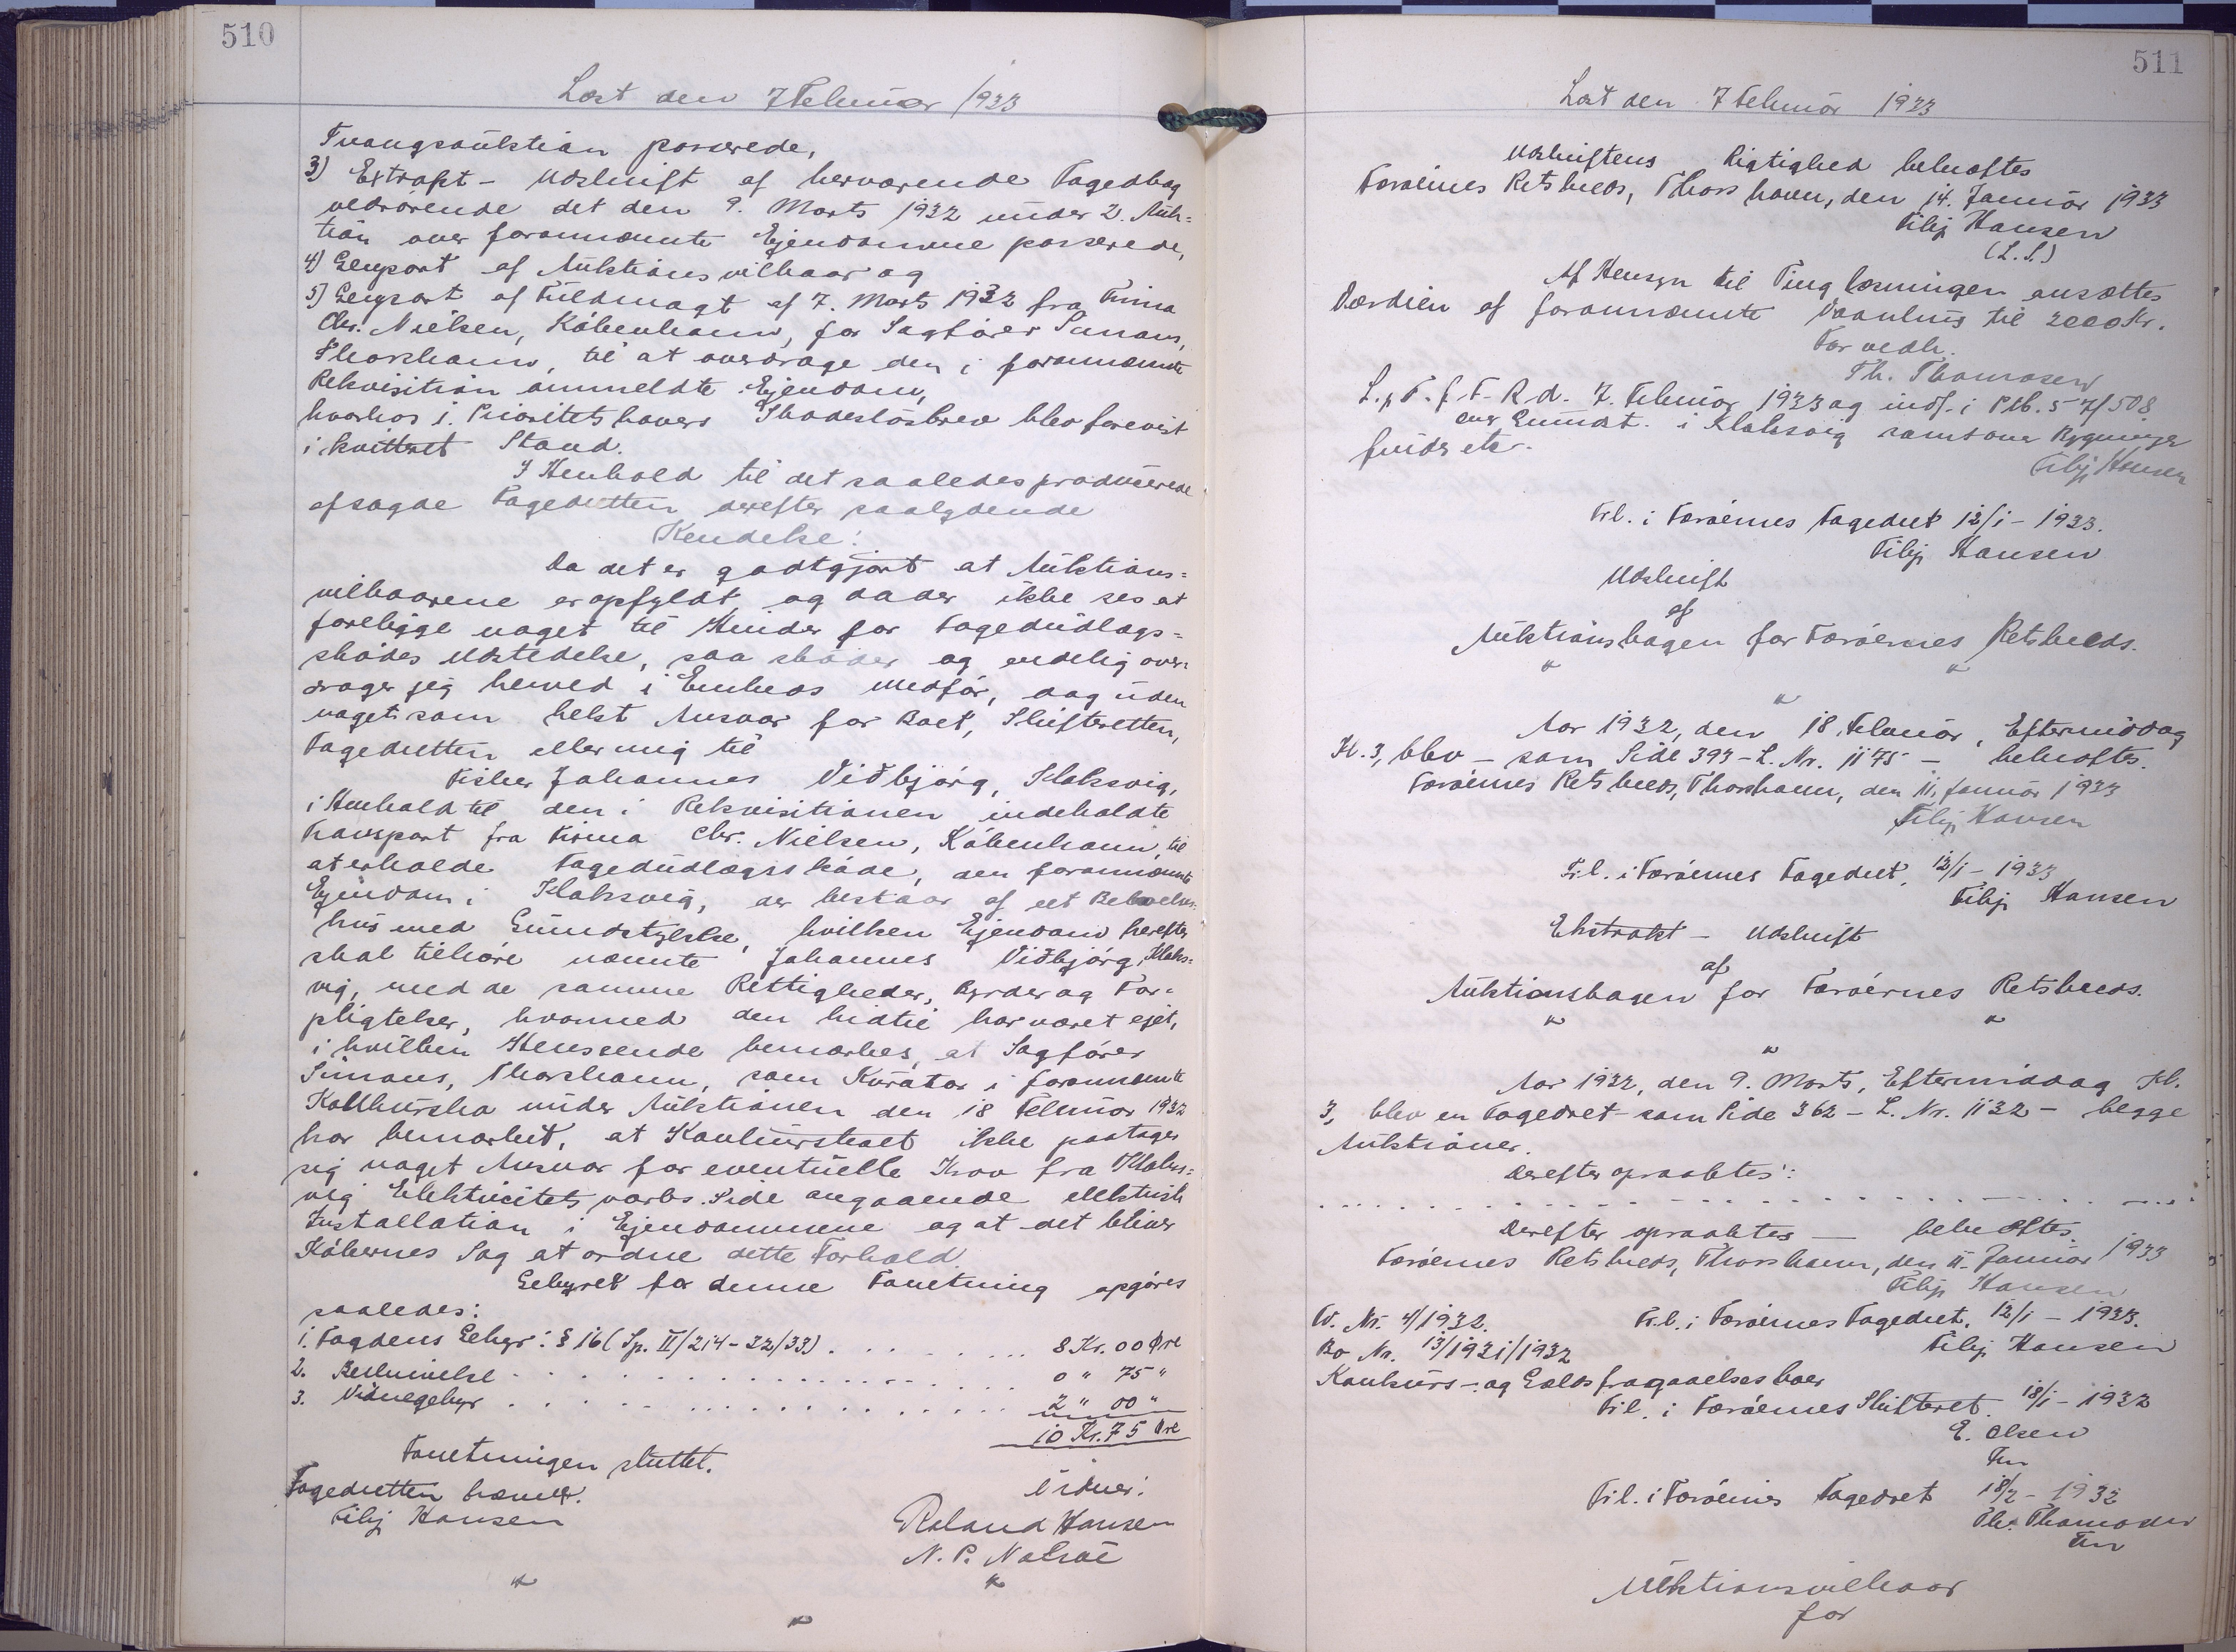 510
Læst den 7 Februar 1933
Tvangsauktion passerede,
3) Extrakt - Udskrift af herværende Fogedbog
vedrørende det den 9. Marts 1932 under 2. Auk=
tion over forannævnte Ejendomme passerede,
4) Genpart af Auktionsvilkaar og
5) Genpart af Fuldmagt af 7. Marts 1932 fra Firma
Chr. Nielsen, København, for Sagfører Simons,
Thorshavn, til at overdrage den i forannævnte
Rekvisition ommeldte Ejendom,
hvorhos 1. Prioritetshavers Skadesløsbrev blev forevist
i kvitteret Stand.
I Henhold til det saaledes producerede
afsagde Fogedretten derefter saalydende
Kendelse:
Da det er godtgjort at Auktions=
vilkaarene er opfyldt og da der ikke ses at
foreligge noget til Hinder for Fogedudlægs=
skødes Udstedelse, saa skøder og endelig over=
drager jeg herved i Embeds Medfør, dog uden
noget som helst Ansvar for Boet, Skifteretten,
Fogedretten eller mig til
Fisker Johannes Viðbjørg, Klaksvig,
i Henhold til den i Rekvisitionen indeholdte
Transport fra Firma Chr. Nielsen, København, til
at erholde Fogedudlægsskøde, den forannævnte
Ejendom i Klaksvig, der bestaar af et Beboelses=
hus med Grundstykke, hvilken Ejendom herefter
skal tilhøre nævnte Johannes Viðbjørg, Klaks=
vig, med de samme Rettigheder, Byrder og For=
pligtelser, hvormed den hidtil har været ejet,
i hvilken Henseende bemærkes, at Sagfører
Simons, Thorshavn, som Kurator i forannævnte
Konkursbo under Auktionen den 18 Februar 1932
har bemærket, at Konkursboet ikke paatager
sig noget Ansvar for eventuelle Krav fra Klaks=
vig Elektricitetsværks Side angaaende elektrisk
Installation i Ejendommene og at det bliver
Købernes Sag at ordne dette Forhold.
Gebyret for denne Forretning opgøres
saaledes:
1. Fogdens Gebyr: § 16 (Sp. II/214-32/33) . . . . . . . . 8 Kr. 00 Øre
2. Beskrivelse . . . . . . . . . . . . . . . . 0 " 75 "
3. Vidnegebyr . . . . . . . . . . . . . . . . 2 " 00 "
10 Kr. 75 Øre
Forretningen sluttet.
Fogedretten hævet.
Filip Hansen
Vidner:
Roland Hansen
N. P. Nolsøe
511
Læst den 7 Februar 1933
Udskriftens Rigtighed bekræftes
Færøernes Retskreds, Thorshavn, den 14. Januar 1933
Filip Hansen
(L.S.)
Af Hensyn til Tinglæsningen ansættes
Værdien af forannævnte Vaanhus til 2000 Kr.
Forvedk.
Th. Thomasen
L. p. F. f. F. R. d. 7. Februar 1933 og indf. i Ptb. 5 7/508
over Grundst. i Klaksvig samt over Bygninger
funds etc.
Filip Hansen
Frl. i Færøernes Fogedret 12/1 - 1933.
Filip Hansen
Udskrift
af
Auktionsbogen for Færøernes Retskreds.
Aar 1932, den 18. Februar, Eftermiddag
Kl. 3, blev - som Side 393 - L. Nr. 1175 - bekræftes.
Færøernes Retskreds, Thorshavn, den 11. Januar 1933
Filip Hansen
Frl. i Færøernes Fogedret, 12/1 - 1933
Filip Hansen
Ekstrakt - Udskrift
af
Auktionsbogen for Færøernes Retskreds.
Aar 1932, den 9. Marts, Eftermiddag Kl.
3, blev en Fogedret - som Side 362 - L. Nr. 1132 - begge
Auktioner.
Derefter opraabtes:
Derefter opraabtes — bekræftes.
Færøernes Retskreds, Thorshavn, den 11. Januar 1933
Filip Hansen
Nr. 4/1932. Frl. i Færøernes Fogedret, 12/1 - 1933.
Filip Hansen
Bo Nr. 13/1931/1932
Konkurs- og Gældsfragaaelsesboer
Frl. i Færøernes Skifteret. 18/1 - 1932
E. Olsen
Fm
Frl. i Færøernes Fogedret 18/2 - 1932
Th. Thomasen
Fm
Auktionsvilkaar
for